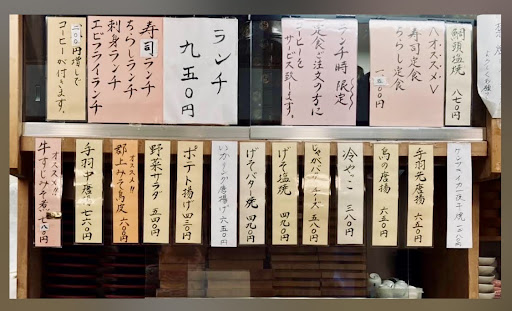 鯛頭塩焼 八七〇円
<オススメ>
寿司定食
ちらし定食
一、〇〇〇円
ランチ時限定
定食ご注文の方に
コーヒーを
サービス致します。
ランチ
九五〇円
寿司ランチ
ちらしランチ
刺身ランチ
エビフライランチ
一〇〇円増しで
コーヒーが付きます。
手羽先唐揚 六五〇円
鳥の唐揚
冷やっこ 三八〇円
げそ塩焼 四九〇円
げそバター焼 四九〇円
ポテト揚げ 四三〇円
オススメ!!
野菜サラダ 五四〇円
オススメ!!
郡上みそ鳥皮
手羽中唐揚 七六〇円
オススメ!!
牛すじみそ煮